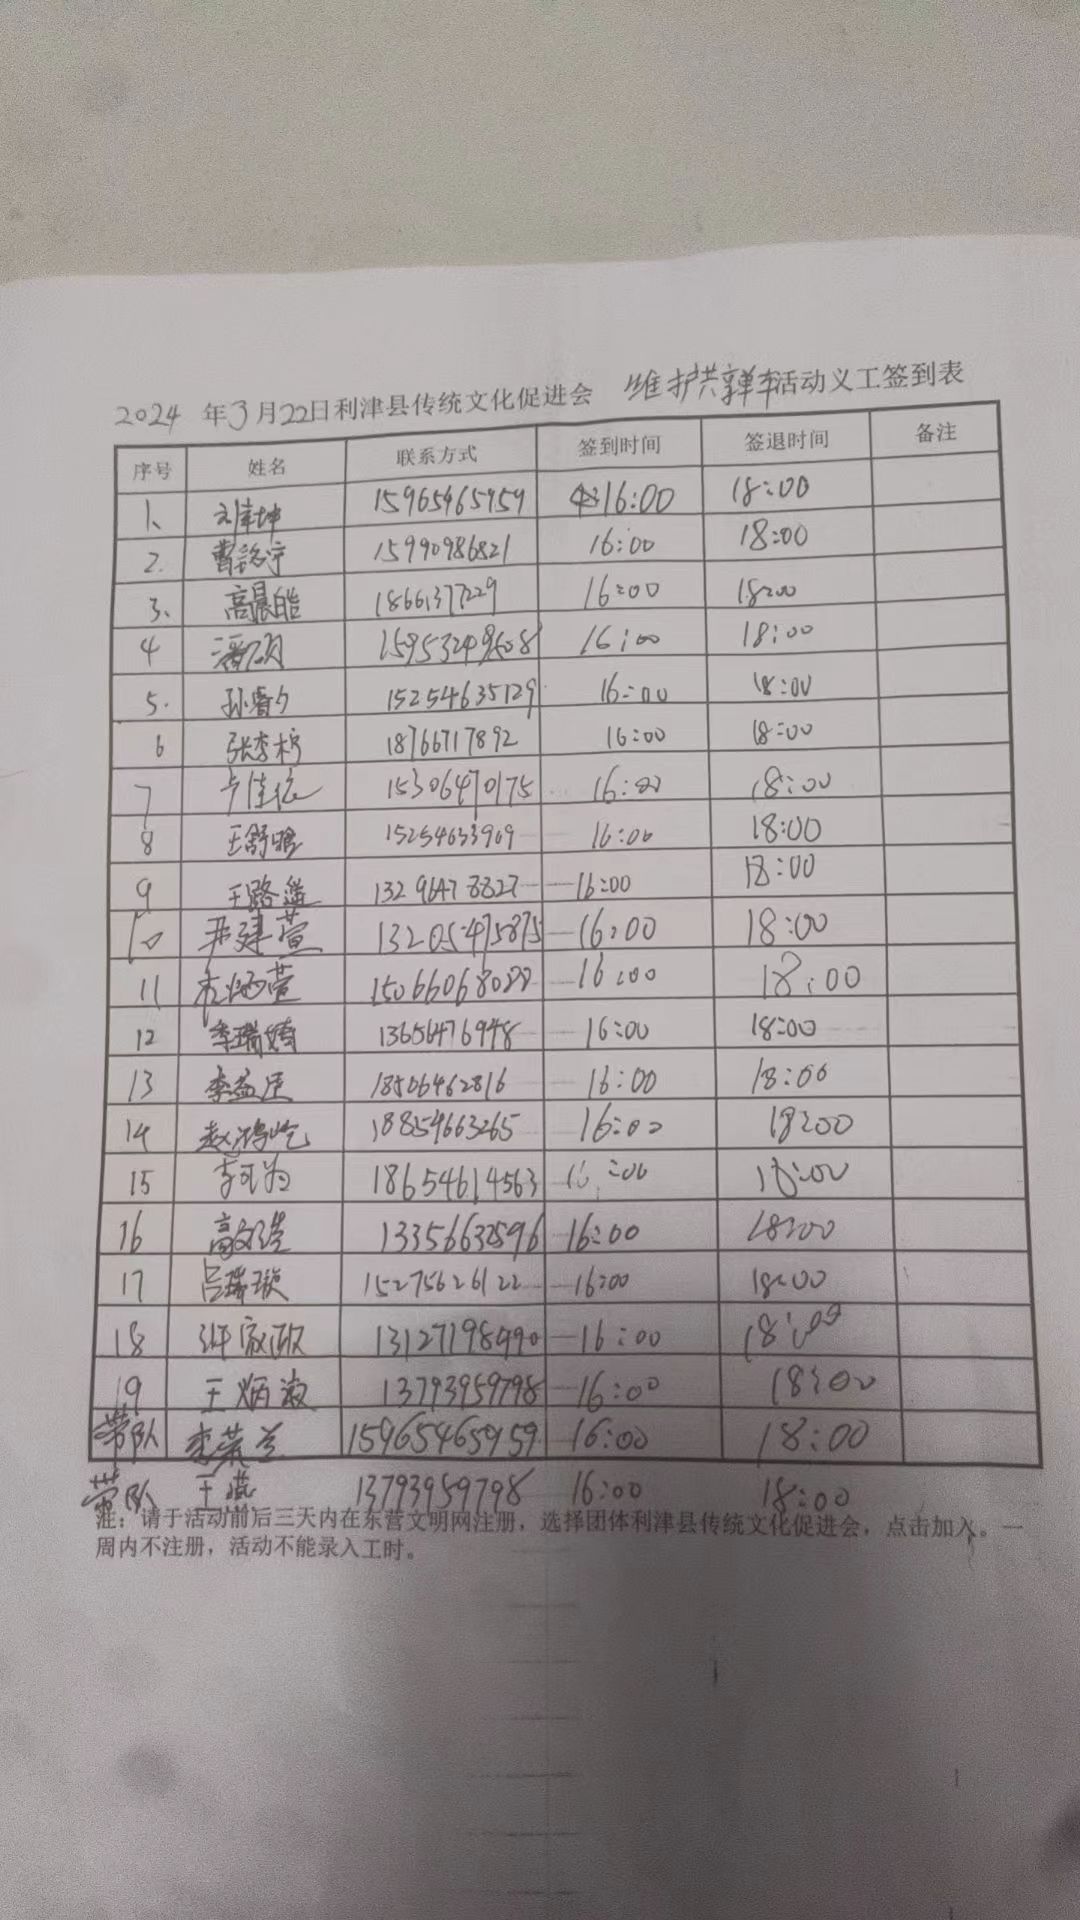 2024 年3月22日利津县传统文化促进会 维护共享单车活动义工签到表
序号 姓名 联系方式 签到时间 签退时间 备注
1、 15965465959 16:00 18:00
2. 曹铭宇 15990986821 16:00 18:00
3、 高晨皓 18661377229 16:00 18:00
4 潘硕 16:00 18:00
5. 孙睿夕 15254635129 16:00 18:00
6 张李柠 18766717892 16:00 18:00
7 卢佳依 15306470175 16:00 18:00
8 王舒晗 15254633909 16:00 18:00
9 王路遥 13296478827 16:00 18:00
10 尹建萱 16:00 18:00
11 15066068088 16:00 18:00
12 李瑞婧 13656476948 16:00 18:00
13 李孟臣 18506462816 16:00 18:00
14 赵鸿屹 18854663265 16:00 18:00
15 李可为 18654614563 16:00 18:00
16 13356632596 16:00 18:00
17 吕瑞璇 15275626122 16:00 18:00
18 13127198490 16:00 18:00
19 王炳淑 13793959798 16:00 18:00
带队 李荣兰 15965465959 16:00 18:00
带队 王燕 13793959798 16:00 18:00
注：请于活动前后三天内在东营文明网注册，选择团体利津县传统文化促进会，点击加入。一
周内不注册，活动不能录入工时。